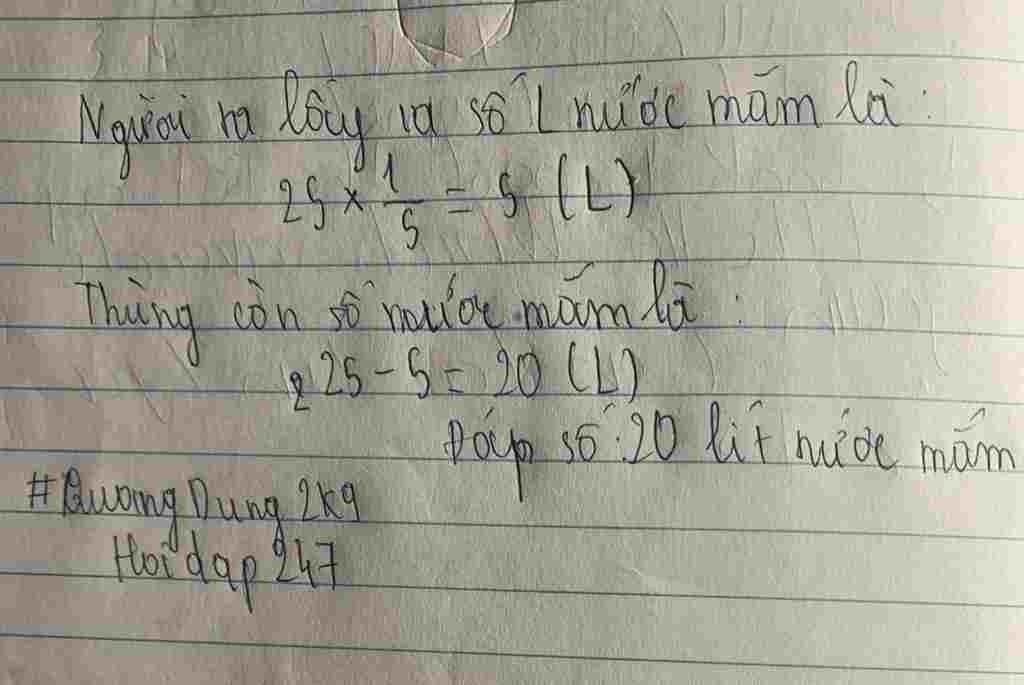 Người ra lấy ra số L nước mắm là :
25 × 1/5 = 5 (L)
Thùng còn số nước mắm là :
25 - 5 = 20 (L)
Đáp số : 20 lít nước mắm
#QuongDung2k9
Hoidap247